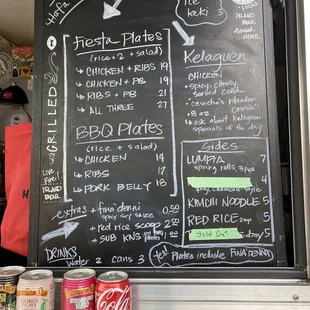 Hafa
ice
keki 3
Fiesta Plates
(rice*2 + salad)
↳ CHICKEN + RIBS 19
↳ CHICKEN + PB 19
↳ RIBS + PB 21
↳ ALL THREE 27
BBQ Plates
(rice + salad)
↳ CHICKEN 14
↳ RIBS 17
↳ PORK BELLY 18
GRILLED
Live
Fire!
Kelaguen
CHICKEN 9
• spicy, citrusy
served cold
• ceviche's islander
cousin!
• 8 oz
↳ ask about kelaguen
specials of the day
Sides
LUMPIA 7
spring rolls, 3 pcs
4
KIMCHI NOODLE 5
RED RICE 2 scp 5
Sold Out 5
extras
+ fina'denni 0.50
spicy soy sauce
+ red rice scoop 2.50
+ SUB KNS
DRINKS
water 2 cans 3
Plates include FINA'DENNI
Coca-Cola